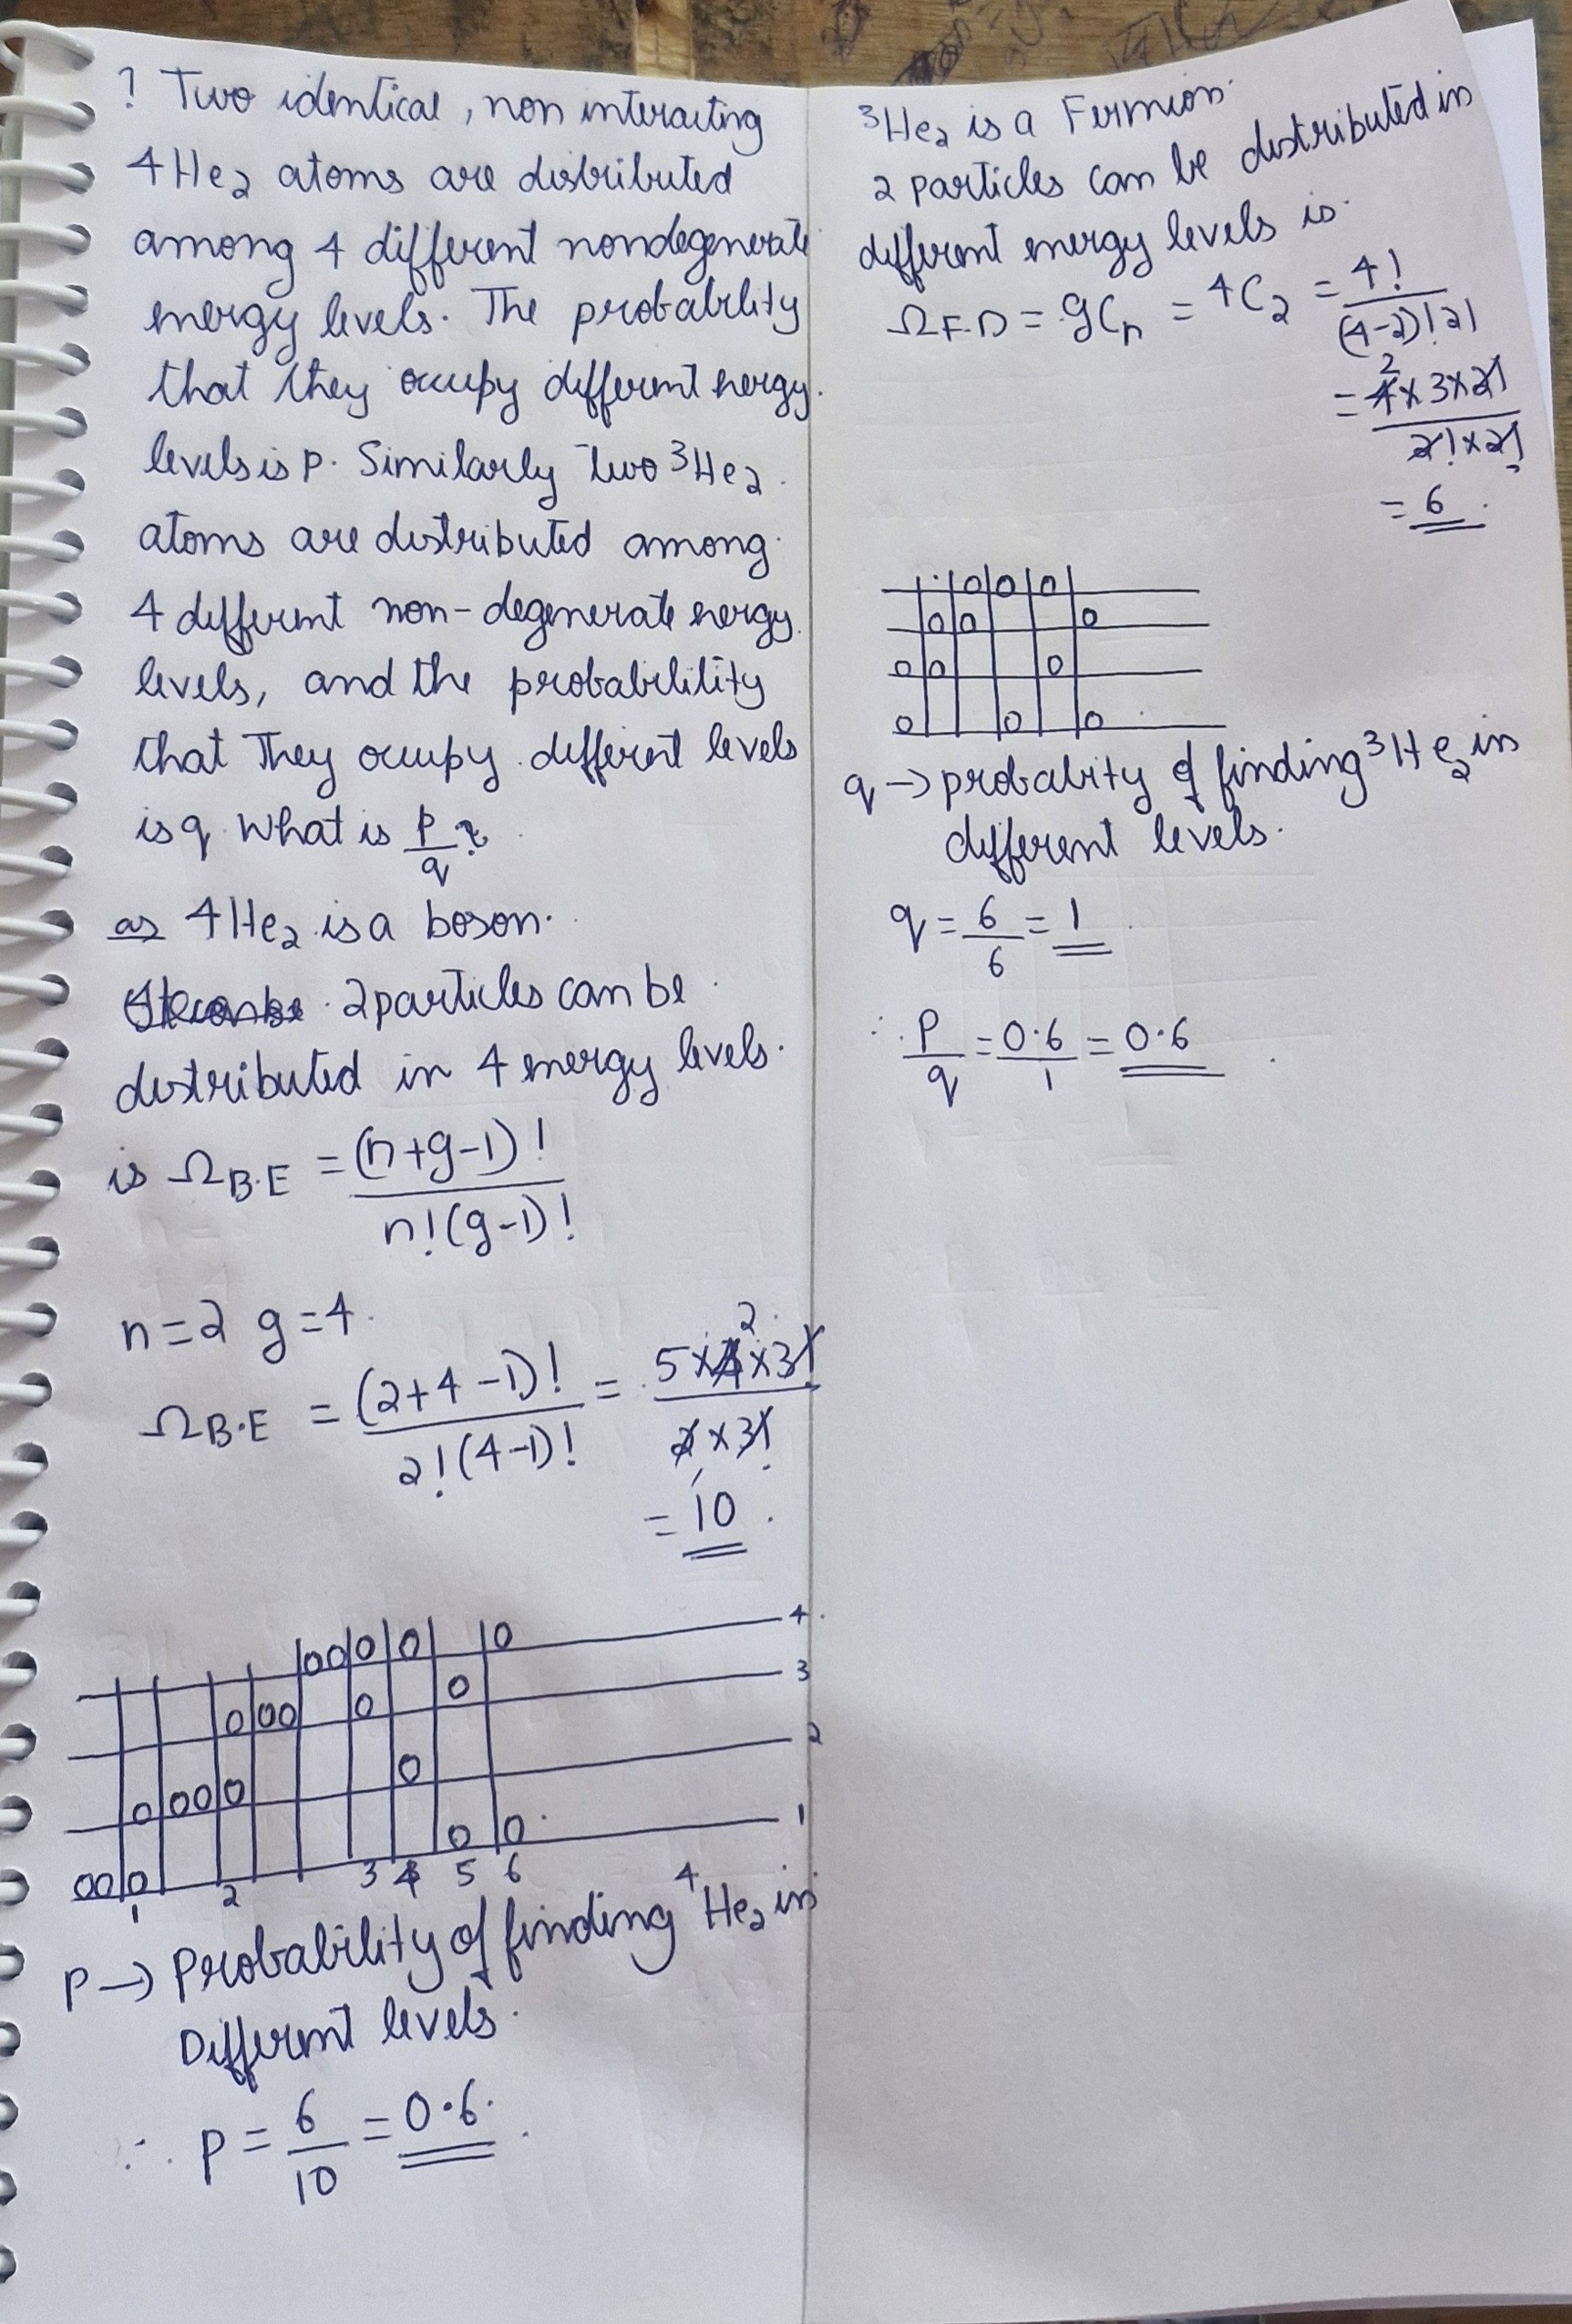 ? Two identical, non interacting
4He₂ atoms are distributed
among 4 different nondegenerate
energy levels. The probability
that they occupy different energy
levels is p. Similarly two ³He₂
atoms are distributed among
4 different non-degenerate energy
levels, and the probabilility
that they occupy different levels
is q. What is p/q?
as 4He₂ is a boson.
2 particles can be
distributed in 4 energy levels.
is Ω_B.E = (n+g-1)! / n!(g-1)!
n=2 g=4
Ω_B.E = (2+4-1)! / 2!(4-1)! = 5×4×3! / 2×3!
2
= 10
4
3
2
1
1 2 3 4 5 6
p → Probability of finding ⁴He₂ in
Different levels.
∴ p = 6/10 = 0.6
³He₂ is a Fermion.
2 particles can be distributed in
different energy levels is
Ω_F.D = gCₙ = ⁴C₂ = 4! / (4-2)!2!
2
= 4×3×2! / 2!×2!
= 6
q → probality of finding ³He₂ in
different levels.
q = 6/6 = 1
∴ p/q = 0.6/1 = 0.6